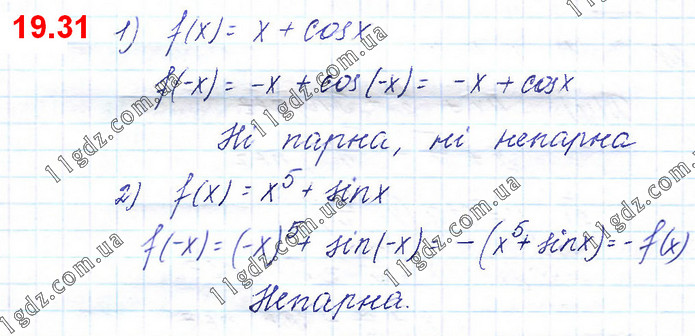 19.31 1) f(x) = x + cosx
f(-x) = -x + cos(-x) = -x + cosx
Ні парна, ні непарна
2) f(x) = x⁵ + sinx
f(-x) = (-x)⁵ + sin(-x) = -(x⁵ + sinx) = -f(x)
Непарна.
11gdz.com.ua
11gdz.com.ua
11gdz.com.ua
11gdz.com.ua
11gdz.com.ua
11gdz.com.ua